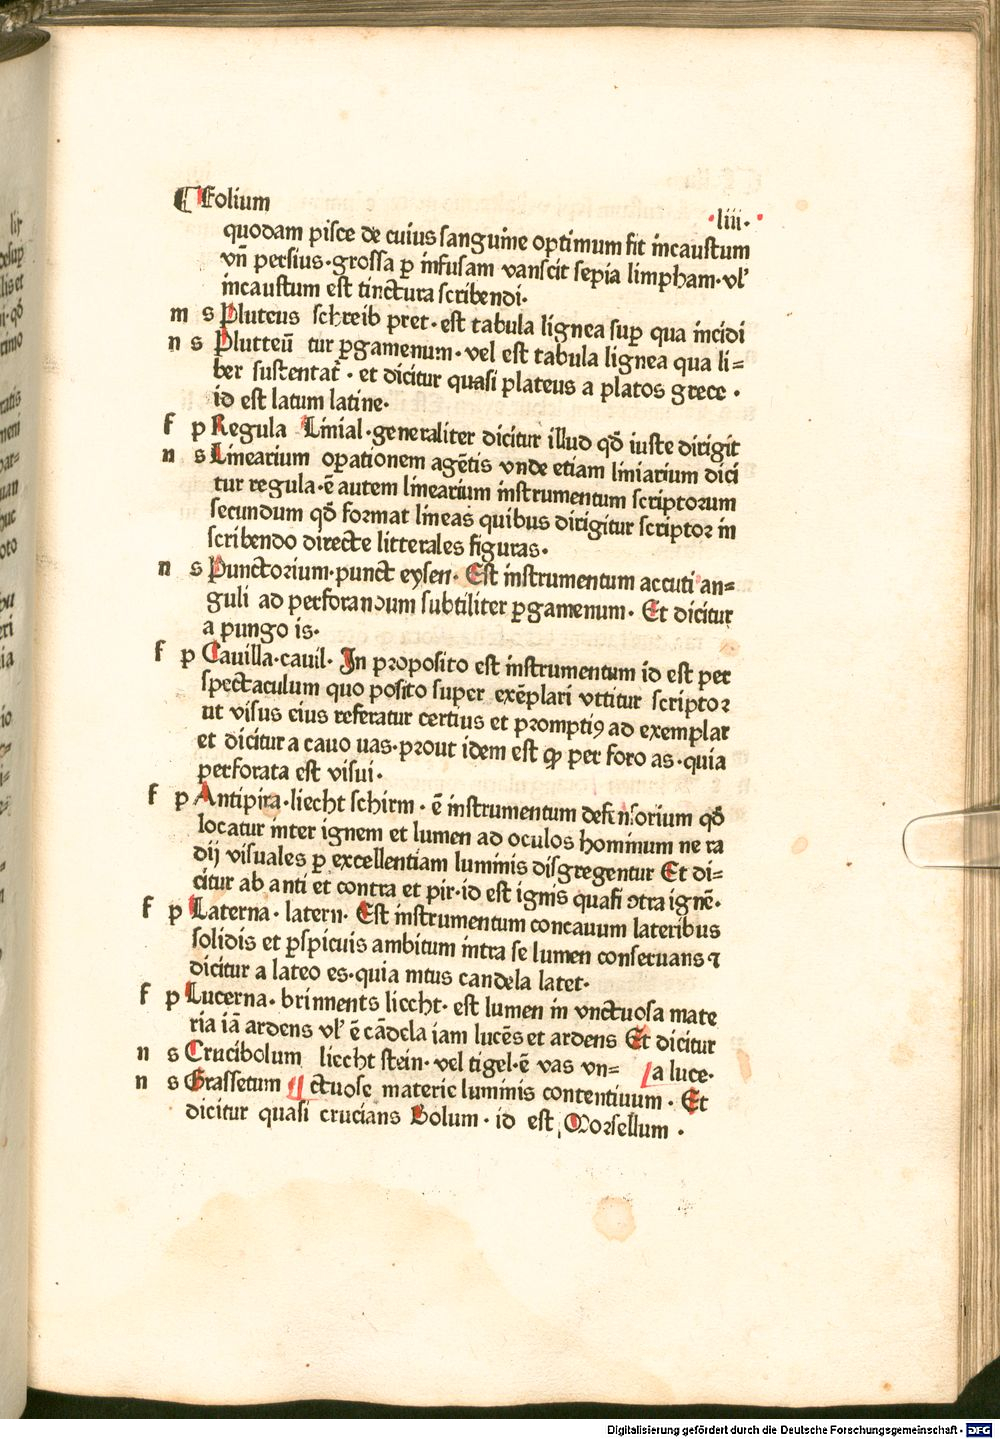 ¶ Folium ·liii·
quodam pisce de cuius sanguine optimum fit incaustum
vñ persius·grossa ꝑ infusam vanscit sepia limpham·vl'
incaustum est tinctura scribendi·
m s Pluteus schreib pret·est tabula lignea suꝑ qua incidi
n s Plutteū tur ꝑgamenum·vel est tabula lignea qua li=
ber sustentat̄·et dicitur quasi plateus a platos grece·
id est latum latine·
f p Regula Linial·generaliter dicitur illud qd̄ iuste dirigit
n s Linearium oꝑationem agētis vnde etiam liniarium dici
tur regula·ē autem linearium instrumentum scriptoꝛum
secundum qd̄ foꝛmat lineas quibus dirigitur scriptoꝛ in
scribendo directe litterales figuras·
n s Punctoꝛium·punct eysen·Est instrumentum accuti an=
guli ad perforandum subtiliter ꝑgamenum·Et dicitur
a pungo is·
f p Cauilla·cauil·In pꝛoposito est instrumentum id est per
spectaculum quo posito super exēplari vttitur scriptoꝛ
ut visus eius referatur certius et pꝛomptiꝰ ad exemplar
et dicitur a cauo uas·pꝛout idem est ꝙ per foro as·quia
perforata est visui·
f p Antipira·liecht schirm·ē instrumentum defensorium qd̄
locatur inter ignem et lumen ad oculos hominum ne ra
dij visuales ꝑ excellentiam luminis disgregentur Et di=
citur ab anti et contra et pir·id est ignis quasi ↄtra ignē·
f p Laterna·latern·Est instrumentum concauum lateribus
solidis et ꝑspicuis ambitum intra se lumen conseruans ⁊
dicitur a lateo es·quia intus candela latet·
f p Lucerna·brinnents liecht·est lumen in vnctuosa mate
ria iā ardens vl' ē cādela iam lucēs et ardens Et dicitur
n s Crucibolum liecht stein·vel tigel·ē vas vn= a luce·
n s Grassetum ctuose materie luminis contentiuum·Et
dicitur quasi crucians Bolum·id est Moꝛsellum·
Digitalisierung gefördert durch die Deutsche Forschungsgemeinschaft - DFG